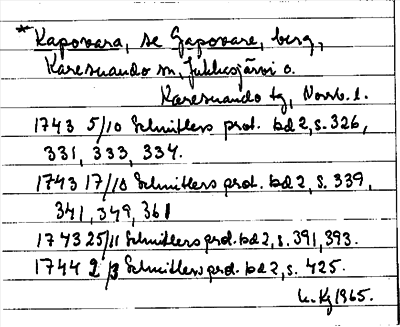 *Kapovara, se Gapovare, berg,
Karesuando sn, Jukkasjärvi o.
Karesuando tg, Norrb. l.
1743 5/10 Schnitlers prot. bd 2, s. 326,
331, 333, 334.
1743 17/10 Schnitlers prot. bd 2, s. 339,
341, 349, 361
1743 25/11 Schnitlers prot. bd 2, s. 391, 393.
1744 2/3 Schnitlers prot. bd 2, s. 425.
Kg 1965.